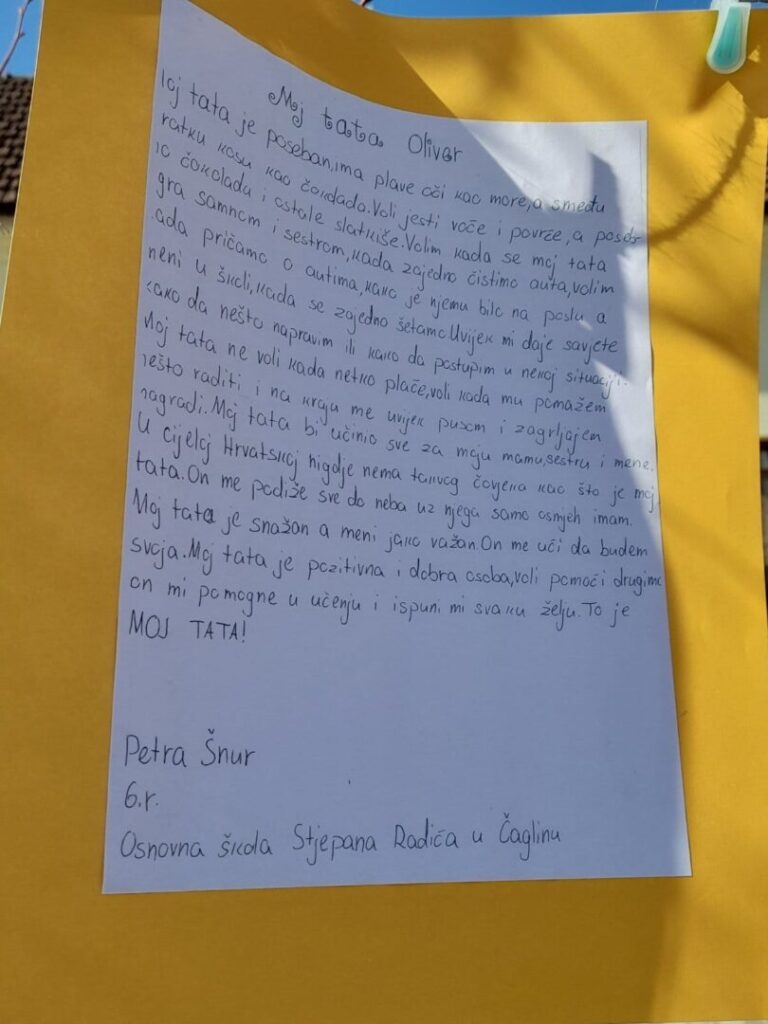 Moj tata Oliver
Moj tata je poseban,ima plave oči kao more,a smeđu
kratku kosu kao čokolada.Voli jesti voće i povrće,a poseb
no čokolada i ostale slatkiše.Volim kada se moj tata
igra samnom i sestrom,kada zajedno čistimo auta,volim
kada pričamo o autima,kako je njemu bilo na poslu a
meni u školi,kada se zajedno šetamo.Uvijek mi daje savjete
kako da nešto napravim ili kako da postupim u nekoj situaciji.
Moj tata ne voli kada netko plače,voli kada mu pomažem
nešto raditi i na kraju me uvijek pusom i zagrljajem
nagradi.Moj tata bi učinio sve za moju mamu,sestru i mene.
U cijeloj Hrvatskoj nigdje nema takvog čovjeka kao što je moj
tata.On me podiže sve do neba uz njega samo osmjeh imam.
Moj tata je snažan a meni jako važan.On me uči da budem
svoja.Moj tata je pozitivna i dobra osoba,voli pomoći drugima
on mi pomogne u učenju i ispuni mi svaku želju.To je
MOJ TATA!
Petra Šnur
6.r.
Osnovna škola Stjepana Radića u Čaglinu